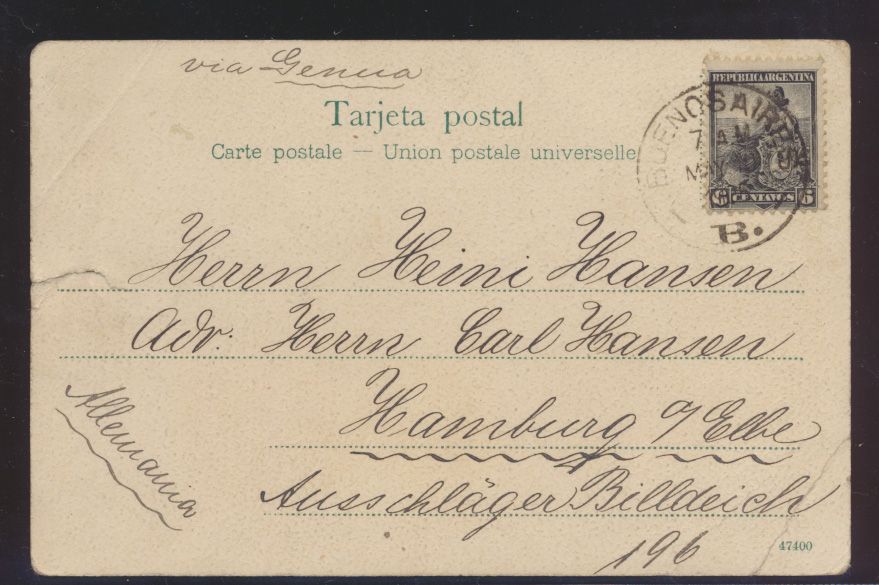 via Genua
Tarjeta postal
Carte postale — Union postale universelle
REPUBLICA ARGENTINA
6 CENTAVOS 6
BUENOS AIRES
7 AM
MAY
B.
Herrn Heini Hansen
Adr: Herrn Carl Hansen
Hamburg a/Elbe
Allemania
Ausschläger Billdeich
196
47400